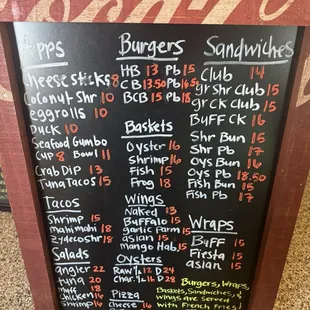 Apps
Cheese sticks 8
Coconut Shr 10
eggrolls 10
Duck 10
Seafood Gumbo
Cup 8 Bowl 11
Crab Dip 13
Tuna Tacos 15
Tacos
Shrimp 15
mahi mahi 18
Zydeco shr 18
Salads
angler 22
tuna 20
Chicken 14
Shrimp 16
Burgers
HB 13 Pb 15
CB 13.50 Pb
BCB 15 Pb 18
Baskets
Oyster 16
Shrimp 16
Fish 15
Frog 18
Wings
Naked 13
Buffalo 15
garlic Farm 15
asian 15
mango Hab 15
Oysters
Raw 1/2 12 D 24
Char. 1/2 16 D 28
Pizza
Cheese 16
Sandwiches
Club 14
gr Shr Club 15
gr CK Club 15
Buff CK 16
Shr Bun 15
Shr Pb 17
Oys Bun 16
Oys Pb 18.50
Fish Bun 15
Fish Pb 17
Wraps
Buff 15
Fiesta 15
asian 15
Burgers, Wraps,
Baskets, Sandwiches, &
wings are Served
with French Fries!